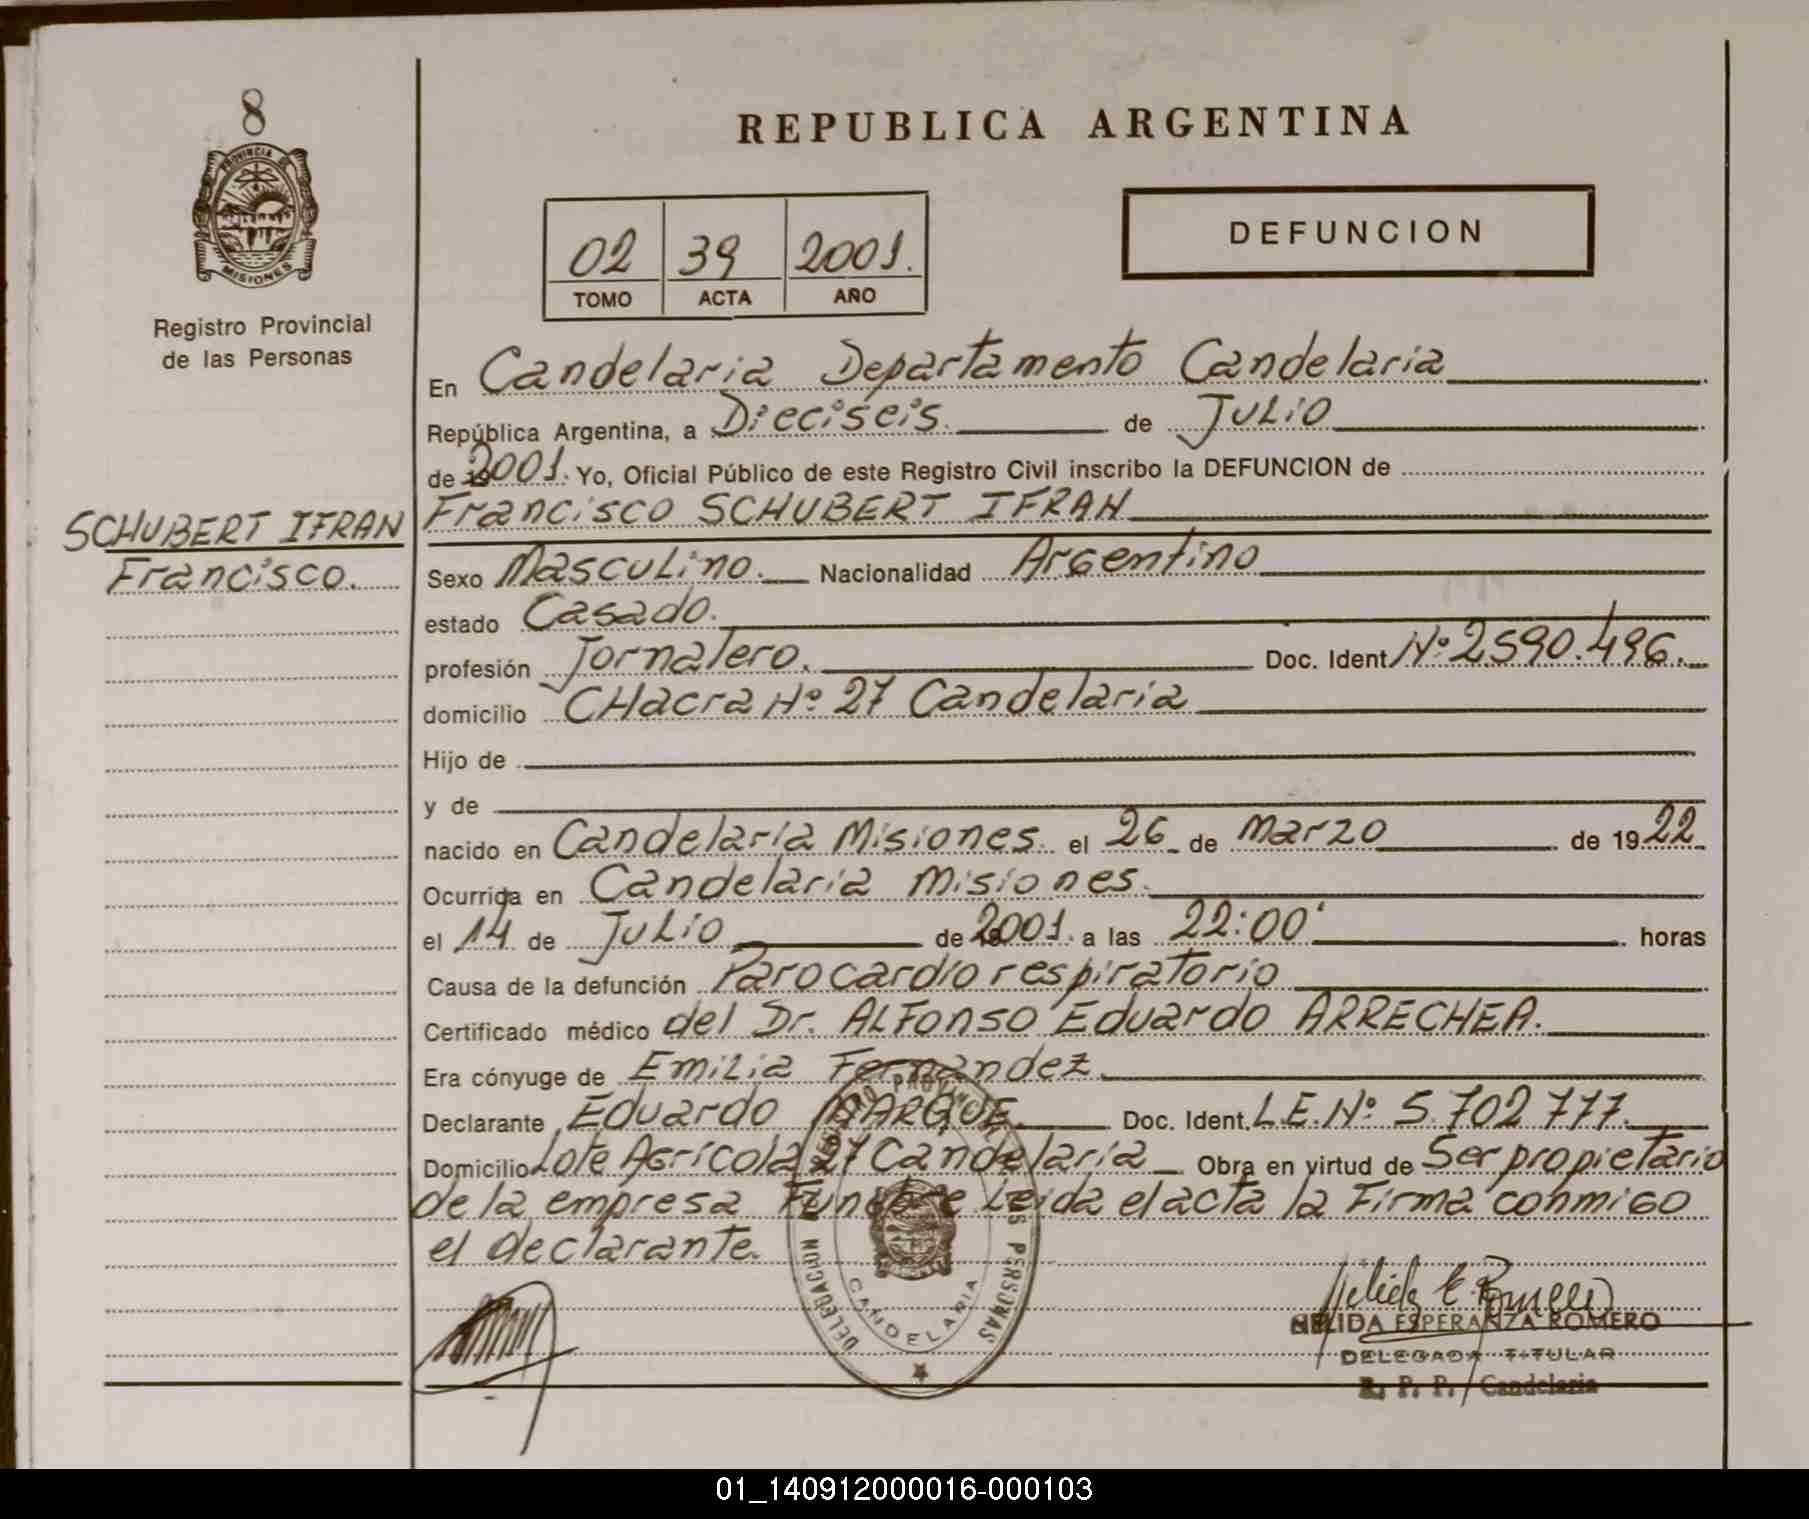 8
PROVINCIA DE
MISIONES
Registro Provincial
de las Personas
SCHUBERT IFRAN
Francisco.
REPUBLICA ARGENTINA
02 39 2001.
TOMO ACTA AÑO
DEFUNCION
En Candelaria Departamento Candelaria
República Argentina, a Dieciseis. de Julio
de 2001. Yo, Oficial Público de este Registro Civil inscribo la DEFUNCION de
Francisco SCHUBERT IFRAN
Sexo Masculino. Nacionalidad Argentino
estado Casado.
profesión Jornalero. Doc. Ident Nº 2590.496.
domicilio CHacra Nº 27 Candelaria
Hijo de
y de
nacido en Candelaria Misiones. el 26 de Marzo de 1922
Ocurrida en Candelaria Misiones.
el 14 de Julio de 2001. a las 22:00' horas
Causa de la defunción Paro cardio respiratorio
Certificado médico del Dr. ALFonso Eduardo ARRECHEA.
Era cónyuge de Emilia Fernandez.
Declarante Eduardo MARQUE. Doc. Ident. L.E. Nº 5.702.777.
Domicilio Lote Agrícola 27 Candelaria Obra en virtud de Ser propietario
de la empresa Funebre Leida el acta la Firma conmigo
el declarante.
DELEGACION PERSONAS
CANDELARIA
Nélida E. Romero
NELIDA ESPERANZA ROMERO
DELEGADA TITULAR
R. P. P. Candelaria
01_140912000016-000103